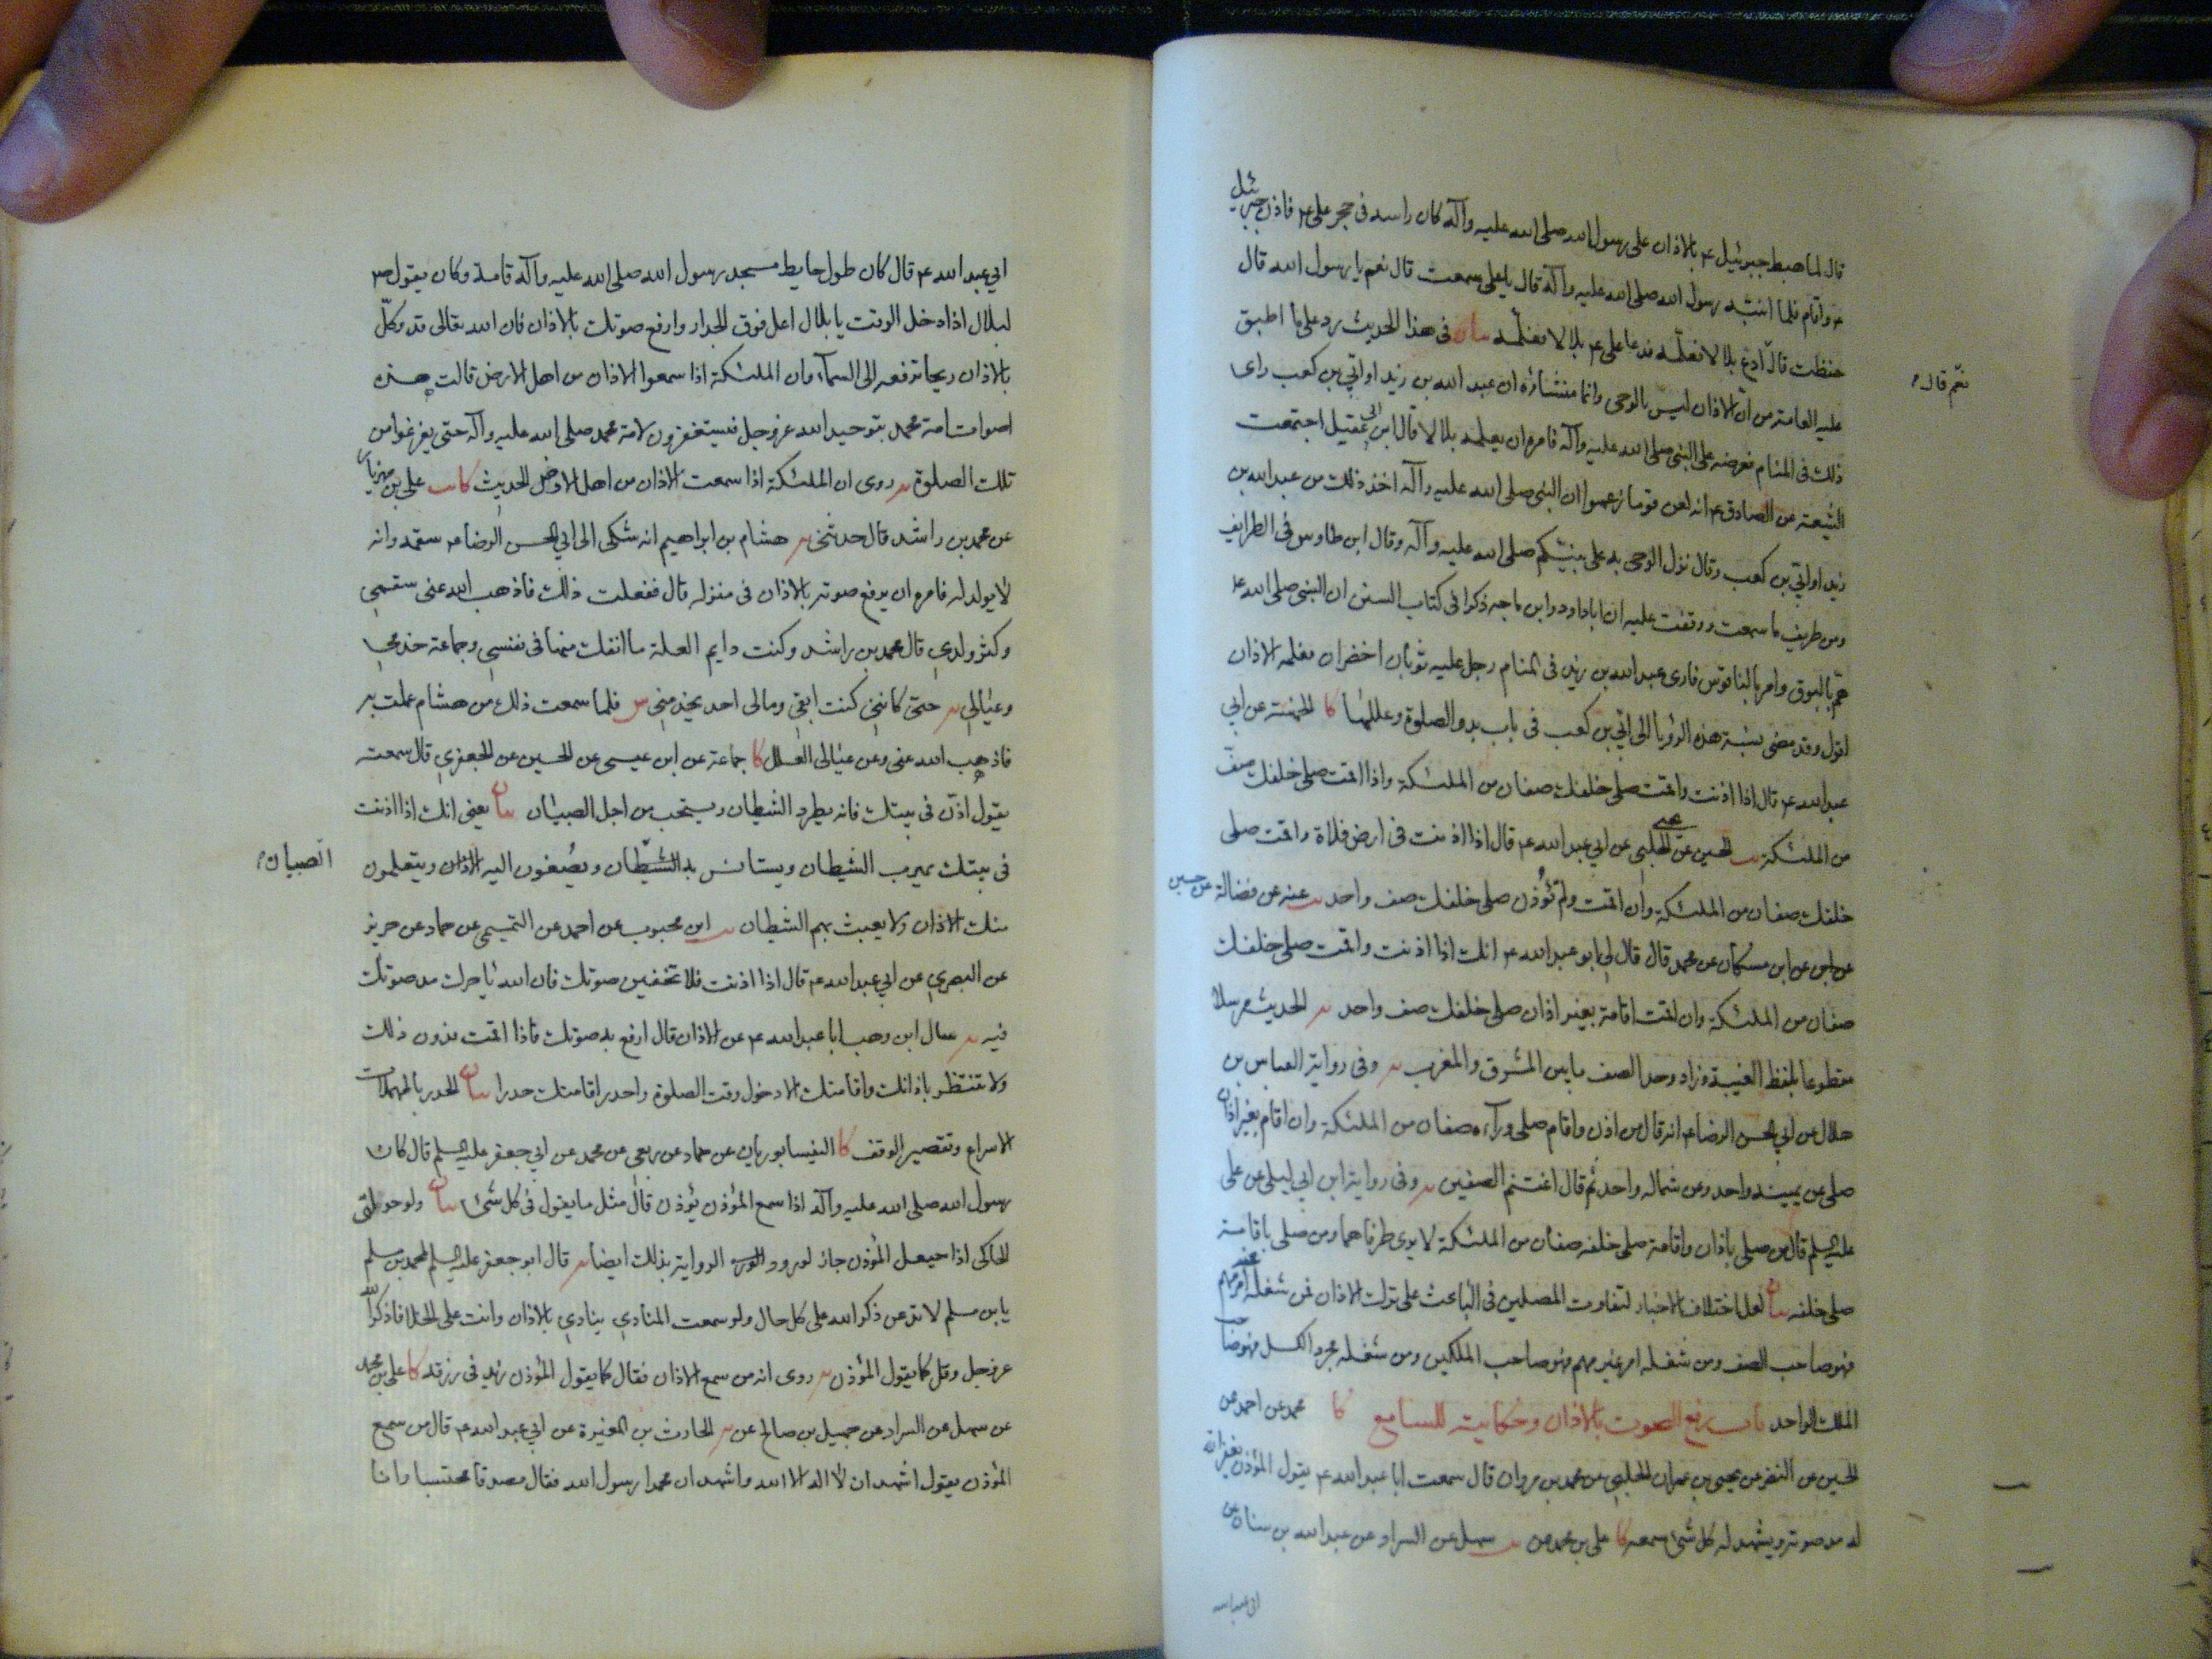 قال لما هبط جبرئيل ع بالاذان على رسول الله صلى الله عليه وآله كان راسه فى حجر على ع فاذن جبرئيل
ع واقام فلما انتبه رسول الله صلى الله عليه وآله قال ياعلى سمعت قال نعم يا رسول الله قال
حفظت قال ادع بلالا نعلّمه فدعا على ع بلالا فعلّمه بيان فى هذا الحديث رد على ما اطبق
نعم قال
عليه العامة من انّ الاذان ليس بالوحى وانما منشاؤه ان عبد الله بن زيد او ابيّ بن كعب راى
ذلك فى المنام فعرضه على النبى صلى الله عليه وآله فامره ان يعلمه بلالا قال ابن ابى عقيل اجتمعت
الشيعة عن الصادق ع انه لعن قوما زعموا ان النبى صلى الله عليه وآله اخذ ذلك من عبد الله بن
زيد او ابيّ بن كعب وقال نزل الوحى به على نبيّكم صلى الله عليه وآله وقال ابن طاوس فى الطرايف
ومن طريف ما سمعت ووقفت عليه ان ابا داود وابن ماجه ذكرا فى كتاب السنن ان النبى صلى الله ع
همّ بالبوق وامر بالناقوس فارى عبد الله بن زيد فى المنام رجل عليه ثوبان اخضران فعلمه الاذان
اقول وقد مضى نسبة هذه الرؤيا الى ابيّ بن كعب فى باب بدو الصلوة وعللها كا الخمسة عن ابي
عبد الله ع قال اذا اذنت واقمت صلى خلفك صفان من الملئكة واذا اقمت صلى خلفك صفّ
من الملئكة يب الحسين عن يحيى الحلبى عن ابي عبد الله ع قال اذا اذنت فى ارض فلاة واقمت صلى
خلفك صفان من الملئكة وان اقمت ولم تؤذن صلى خلفك صف واحد يب عنه عن فضالة عن حسين
عن ابن مسكان عن محمد قال قال لى ابو عبد الله ع انك اذا اذنت واقمت صلى خلفك
صفان من الملئكة وان اقمت اقامة بغير اذان صلى خلفك صف واحد يه الحديث مرسلا
مقطوعا بلفظ الغيبة وزاد وحد الصف ما بين المشرق والمغرب يه وفى رواية العباس بن
هلال عن ابي الحسن الرضا ع انه قال من اذن واقام صلى وراءه صفان من الملئكة وان اقام بغير اذان
صلى عن يمينه واحد وعن شماله واحد ثم قال اغتنم الصفين يه وفى رواية ابن ابي ليلى عن على
عليه السلم قال من صلى باذان واقامة صلى خلفه صفان من الملئكة لا يرى طرفاهما ومن صلى باقامة
صلى خلفه بيان لعل اختلاف الاخبار لتفاوت المصلين فى الباعث على ترك الاذان فمن شغله امر مهم
فهو صاحب الصف ومن شغله امر غير مهم فهو صاحب الملكين ومن شغله مجرد الكسل فهو صاحب
الملك الواحد باب رفع الصوت بالاذان وحكايته للسامع كا محمد عن احمد عن
الحسين عن النضر عن يحيى بن عمران الحلبى عن محمد بن مروان قال سمعت ابا عبد الله ع يقول المؤذن يغفر الله
له مد صوته ويشهد له كل شئ سمعه كا على بن محمد عن يب سهل عن السراد عن عبد الله بن سنان عن
ابى عبد الله
ابي عبد الله ع قال كان طول حايط مسجد رسول الله صلى الله عليه وآله قامة وكان يقول ص
لبلال اذا دخل الوقت يا بلال اعل فوق الجدار وارفع صوتك بالاذان فان الله تعالى قد وكلّ
بالاذان ريحا ترفعه الى السماء وان الملئكة اذا سمعوا الاذان من اهل الارض قالت هذه
اصوات امة محمد بتوحيد الله عز وجل فيستغفرون لامة محمد صلى الله عليه وآله حتى يفرغوا من
تلك الصلوة يه روى ان الملئكة اذا سمعت الاذان من اهل الارض الحديث كا يب على بن مهزيار
عن محمد بن راشد قال حدثنى يه هشام بن ابراهيم انه شكى الى ابي الحسن الرضا ع سقمه وانه
لا يولد له فامره ان يرفع صوته بالاذان فى منزله قال ففعلت ذلك فاذهب الله عنى سقمى
وكثر ولدي قال محمد بن راشد وكنت دايم العلة ما انفك منها فى نفسى وجماعة خدمى
وعيالى يه حتى كاننى كنت ابقى ومالى احد يخدمنى ش فلما سمعت ذلك من هشام عملت به
فاذهب الله عنى وعن عيالى العلل كا جماعة عن ابن عيسى عن الحسين عن الجعفرى قال سمعته
يقول اذن فى بيتك فانه يطرد الشيطان ويستحب من اجل الصبيان بيان يعنى انك اذا اذنت
فى بيتك يهرب الشيطان ويستانس به الشيطان ويصغون اليه الاذان ويتعلمون
الصبيان
منك الاذان ولا يعبث بهم الشيطان يب ابن محبوب عن احمد عن التميمى عن حماد عن حريز
عن البصري عن ابي عبد الله ع قال اذا اذنت فلا تخفين صوتك فان الله ياجرك مد صوتك
فيه يه سال ابن وهب ابا عبد الله ع عن الاذان قال ارفع به صوتك فاذا اقمت فدون ذلك
ولا تنتظر باذانك واقامتك الا دخول وقت الصلوة واحدر اقامتك حدرا بيان الحدر بالمهملات
الاسراع وتقصير الوقف كا النيسابوريان عن حماد عن ربعى عن محمد عن ابي جعفر عليه السلم قال كان
رسول الله صلى الله عليه وآله اذا سمع المؤذن يؤذن قال مثل ما يقول فى كل شئ بيان ولو حولق
الحاكى اذا حيعل المؤذن جاز لورود الرواية بذلك ايضا يه قال ابو جعفر عليه السلم لمحمد بن مسلم
يا بن مسلم لا تدعن ذكر الله على كل حال ولو سمعت المنادي ينادي بالاذان وانت على الخلا فاذكر الله
عز وجل وقل كما يقول المؤذن يه روى انه من سمع الاذان فقال كما يقول المؤذن زيد فى رزقه كا على بن محمد
عن سهل عن السراد عن جميل بن صالح عن يه الحارث بن المغيرة عن ابي عبد الله ع قال من سمع
المؤذن يقول اشهد ان لا اله الا الله واشهد ان محمدا رسول الله فقال مصدقا محتسبا وانا